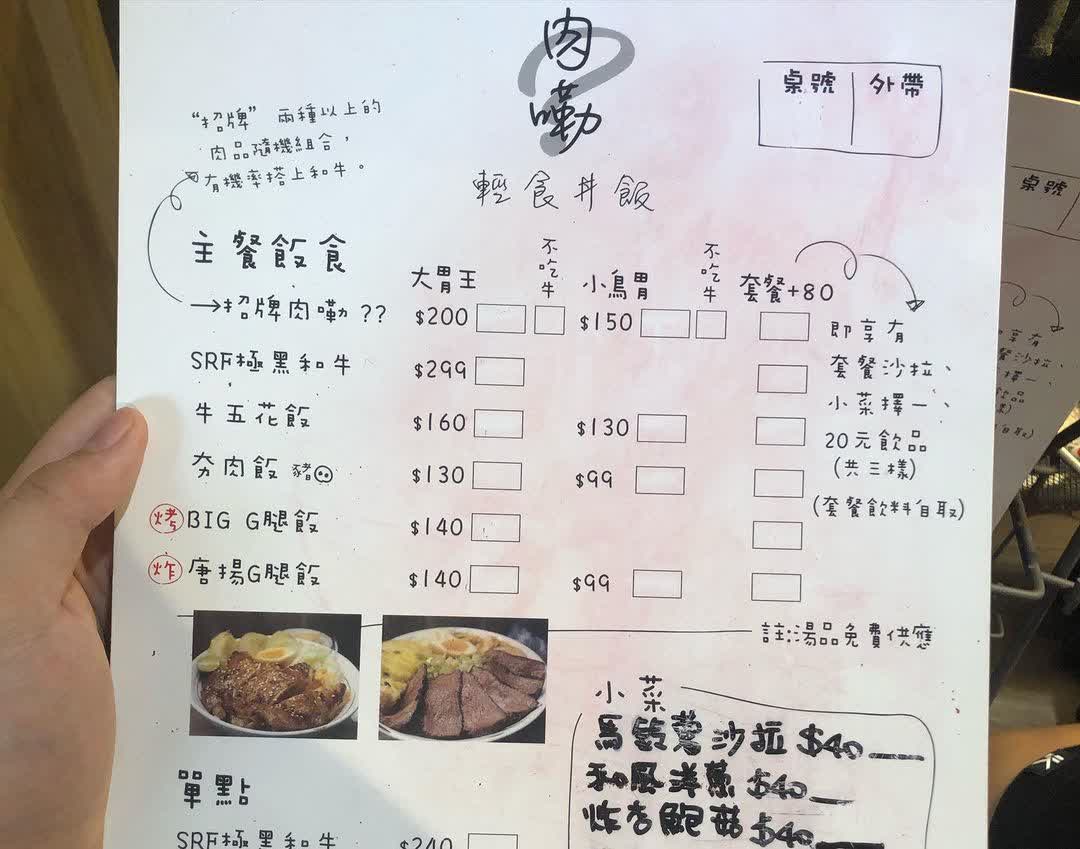 肉
嘞
?
桌號 外帶
“招牌” 兩種以上的
肉品隨機組合,
有機率搭上和牛。
輕食丼飯
主餐飯食 大胃王 不吃牛 小鳥胃 不吃牛 套餐+80
→招牌肉嘞 ?? $200 $150
SRF極黑和牛 $299
牛五花飯 $160 $130
夯肉飯 豬 $130 $99
烤 BIG G腿飯 $140
炸 唐揚G腿飯 $140 $99
即享有
套餐沙拉、
小菜擇一、
20元飲品
(共三樣)
(套餐飲料自取)
註:湯品免費供應
小菜
馬鈴薯沙拉 $40
和風洋蔥 $40
炸杏鮑菇 $40
單點
SRF極黑和牛 $240
桌號